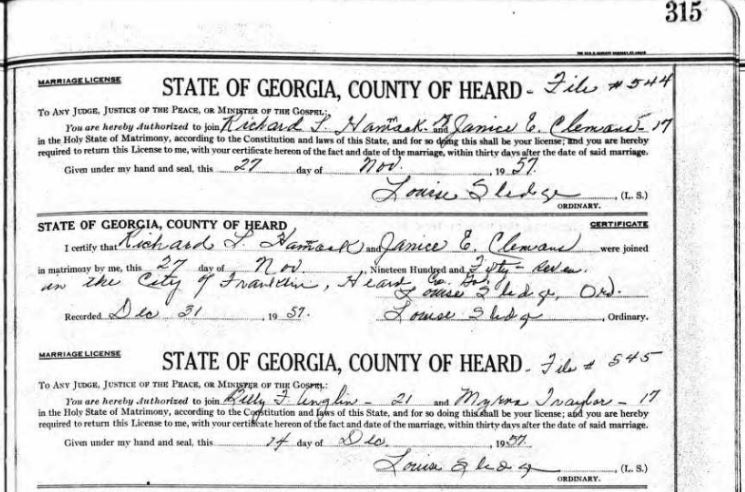 315
MARRIAGE LICENSE STATE OF GEORGIA, COUNTY OF HEARD - File # 544
TO ANY JUDGE, JUSTICE OF THE PEACE, OR MINISTER OF THE GOSPEL:
You are hereby Authorized to join Richard L. Hammack and Janice E. Clemans - 17
in the Holy State of Matrimony, according to the Constitution and laws of this State, and for so doing this shall be your license; and you are hereby
required to return this License to me, with your certificate hereon of the fact and date of the marriage, within thirty days after the date of said marriage.
Given under my hand and seal, this 27 day of Nov. , 19 57.
Louise Sledge , (L. S.)
ORDINARY.
STATE OF GEORGIA, COUNTY OF HEARD CERTIFICATE
I certify that Richard L. Hamack and Janice E. Clemans were joined
in matrimony by me, this 27 day of Nov , Nineteen Hundred and Fifty-seven.
in the City of Franklin, Heard Co. Ga. Louise Sledge, Ord.
Recorded Dec 31 , 19 57. Louise Sledge , Ordinary.
MARRIAGE LICENSE STATE OF GEORGIA, COUNTY OF HEARD - File # 545
TO ANY JUDGE, JUSTICE OF THE PEACE, OR MINISTER OF THE GOSPEL:
You are hereby Authorized to join Billy F. Anglin - 21 and Myrna Traylor - 17
in the Holy State of Matrimony, according to the Constitution and laws of this State, and for so doing this shall be your license; and you are hereby
required to return this License to me, with your certificate hereon of the fact and date of the marriage, within thirty days after the date of said marriage.
Given under my hand and seal, this 14 day of Dec. , 19 57.
Louise Sledge , (L. S.)
ORDINARY.